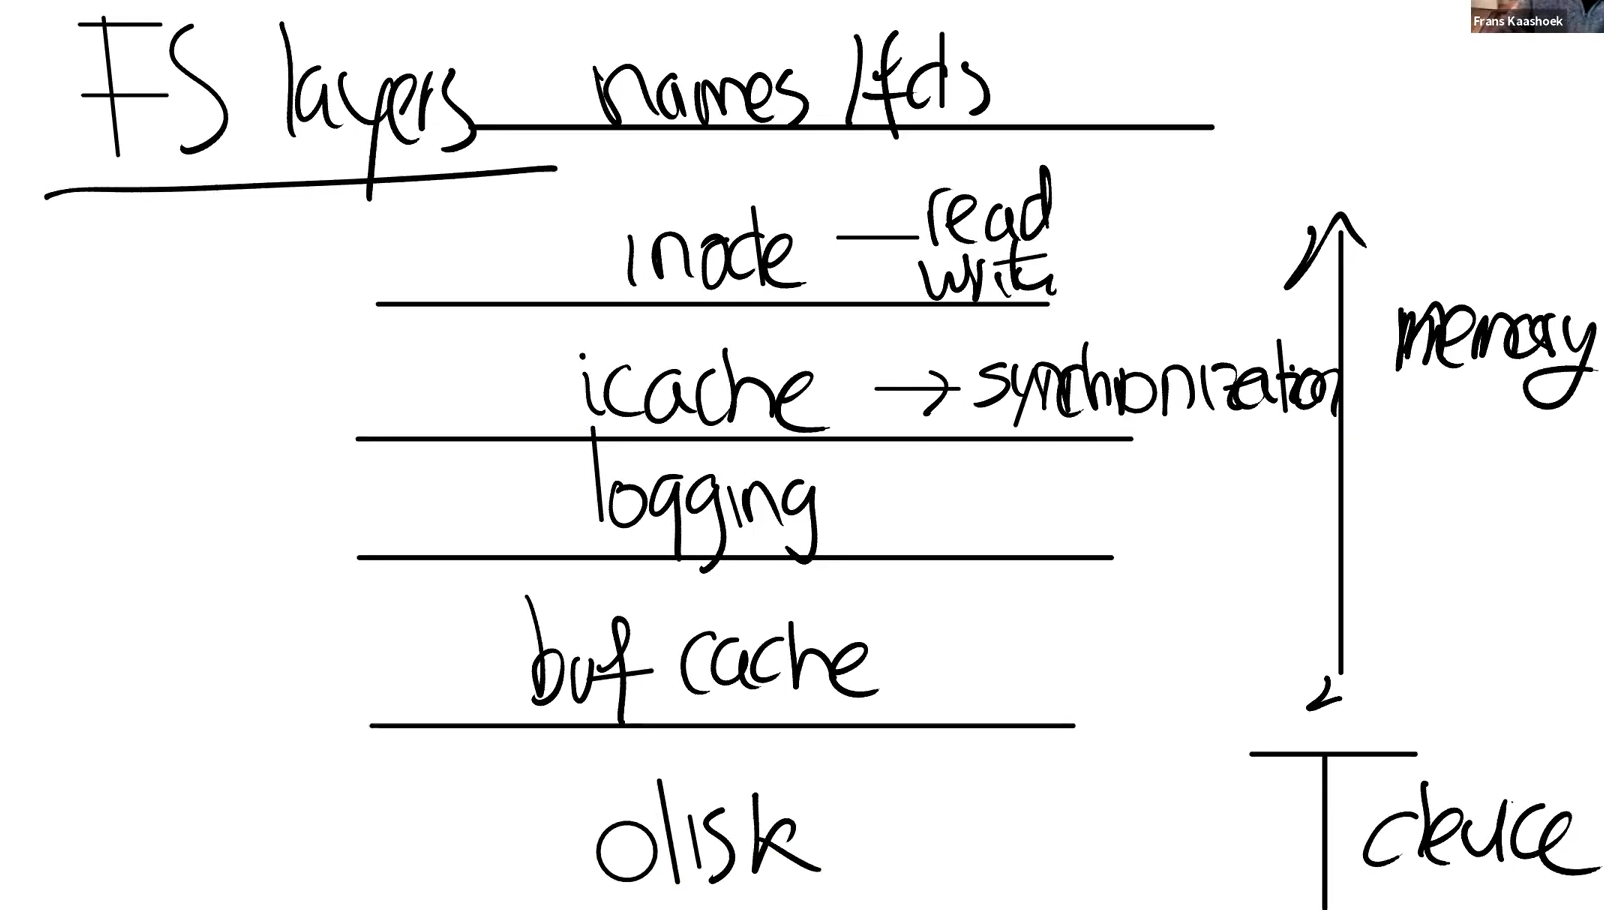 Frans Kaashoek
FS layers
names / fds
inode — read
write
icache → synchronization
memory
logging
buf cache
disk
device